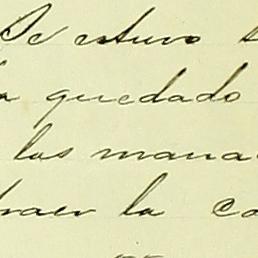 Se estuvo
quedado
las mana
traer la co